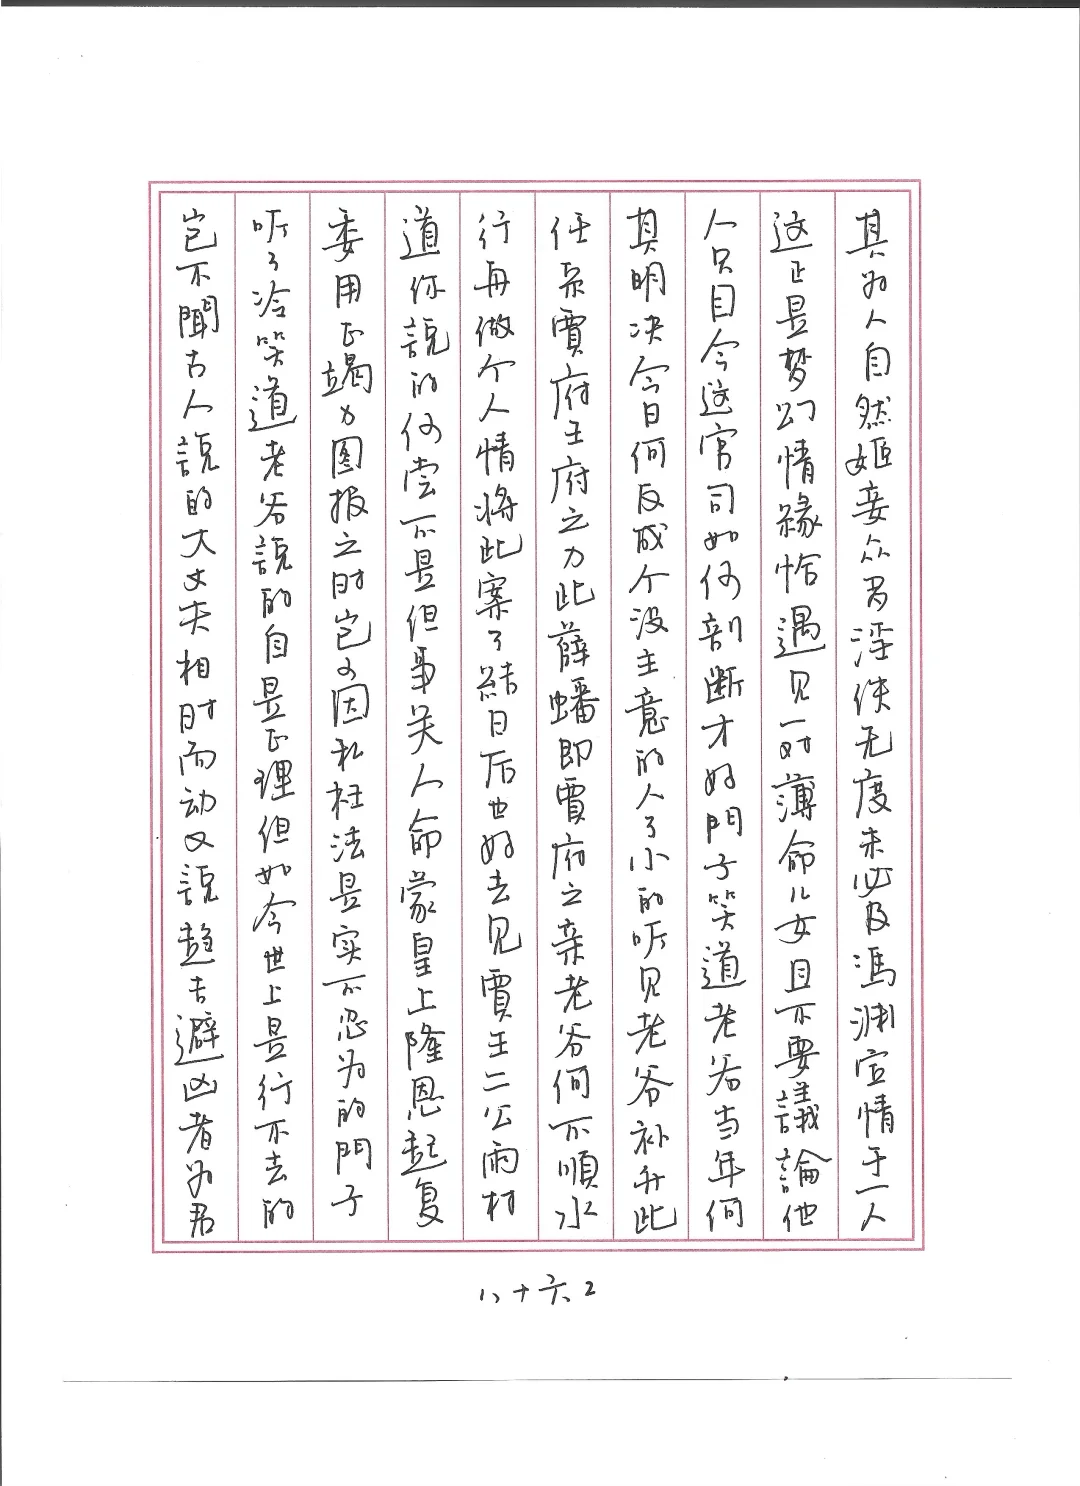 其为人自然姬妾众多淫佚无度未必及馮渊宣情于一人
这正是梦幻情緣恰遇见一对薄命儿女且不要議論他
人只目今这官司如何剖断才好門子笑道老爷当年何
其明决今日何反成个没主意的人了小的听见老爷补升此
任系賈府王府之力此薛蟠即賈府之亲老爷何不順水
行舟做个人情将此案了結日后也好去见賈王二公雨村
道你說的何尝不是但事关人命蒙皇上隆恩起复
委用正竭力图报之时岂可因私枉法是实不忍为的門子
听了冷笑道老爷說的自是正理但如今世上是行不去的
岂不聞古人說的大丈夫相时而动又說趋吉避凶者为君
八十六2